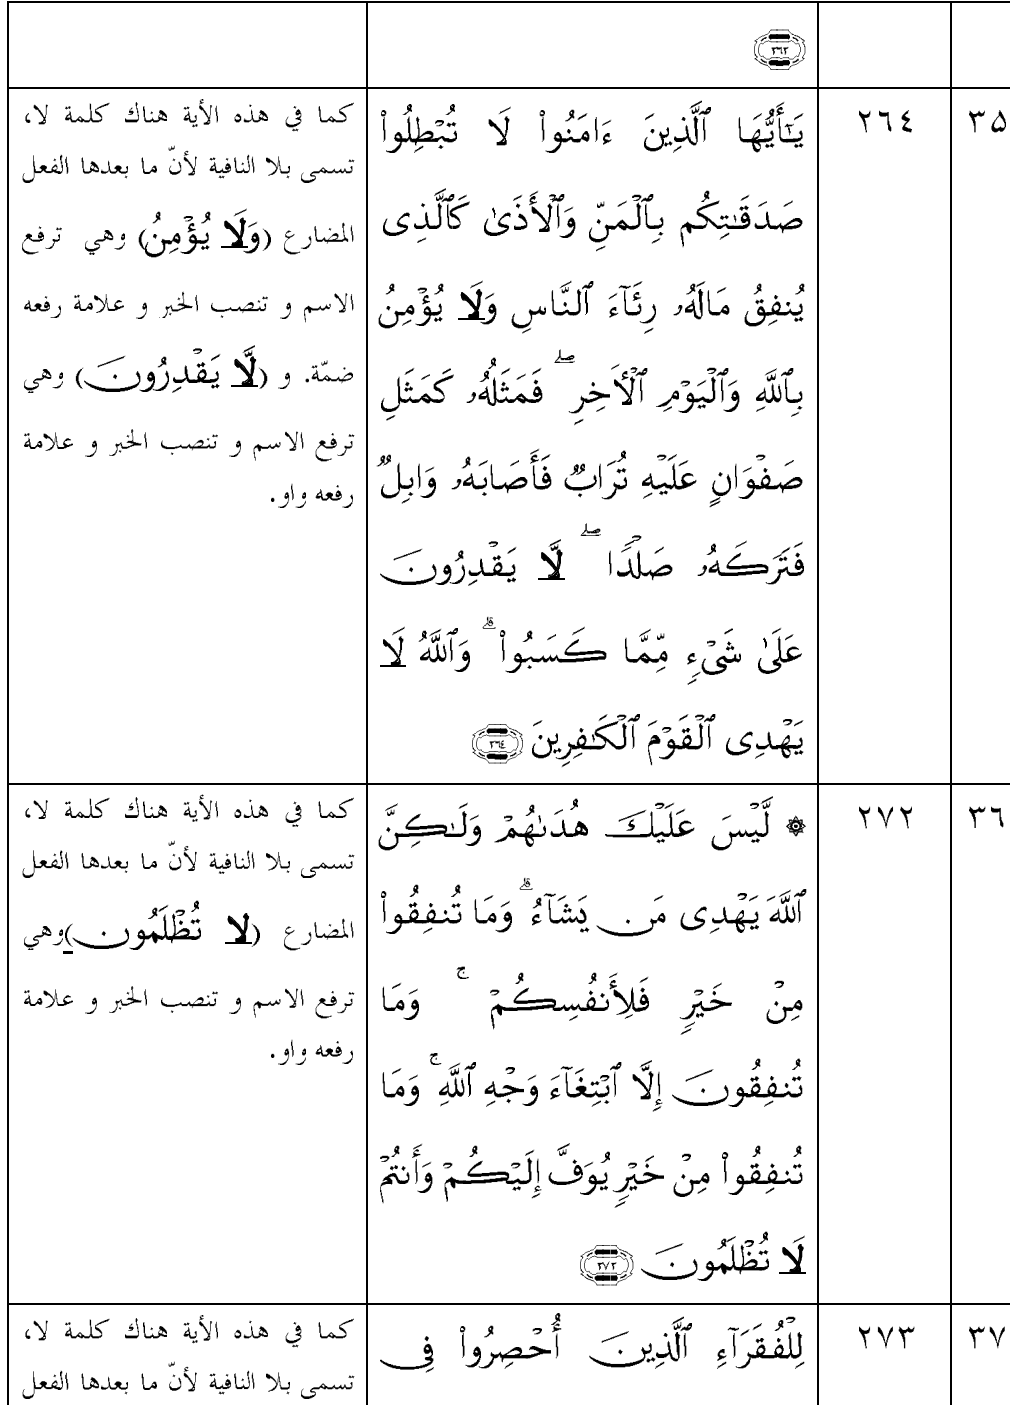 ﴿٢٦٢﴾
٣٥
٢٦٤
يَـٰٓأَيُّهَا ٱلَّذِينَ ءَامَنُوا۟ لَا تُبْطِلُوا۟
صَدَقَـٰتِكُم بِٱلْمَنِّ وَٱلْأَذَىٰ كَٱلَّذِى
يُنفِقُ مَالَهُۥ رِئَآءَ ٱلنَّاسِ وَلَا يُؤْمِنُ
بِٱللَّهِ وَٱلْيَوْمِ ٱلْـَٔاخِرِ ۖ فَمَثَلُهُۥ كَمَثَلِ
صَفْوَانٍ عَلَيْهِ تُرَابٌ فَأَصَابَهُۥ وَابِلٌ
فَتَرَكَهُۥ صَلْدًا ۖ لَّا يَقْدِرُونَ
عَلَىٰ شَىْءٍ مِّمَّا كَسَبُوا۟ ۗ وَٱللَّهُ لَا
يَهْدِى ٱلْقَوْمَ ٱلْكَـٰفِرِينَ ﴿٢٦٤﴾
كما في هذه الأية هناك كلمة لا،
تسمى بلا النافية لأنّ ما بعدها الفعل
المضارع (وَلَا يُؤْمِنُ) وهي ترفع
الاسم و تنصب الخبر و علامة رفعه
ضمّة. و (لَّا يَقْدِرُونَ) وهي
ترفع الاسم و تنصب الخبر و علامة
رفعه واو.
٣٦
٢٧٢
۞ لَّيْسَ عَلَيْكَ هُدَىٰهُمْ وَلَـٰكِنَّ
ٱللَّهَ يَهْدِى مَن يَشَآءُ ۗ وَمَا تُنفِقُوا۟
مِنْ خَيْرٍ فَلِأَنفُسِكُمْ ۚ وَمَا
تُنفِقُونَ إِلَّا ٱبْتِغَآءَ وَجْهِ ٱللَّهِ ۚ وَمَا
تُنفِقُوا۟ مِنْ خَيْرٍ يُوَفَّ إِلَيْكُمْ وَأَنتُمْ
لَا تُظْلَمُونَ ﴿٢٧٢﴾
كما في هذه الأية هناك كلمة لا،
تسمى بلا النافية لأنّ ما بعدها الفعل
المضارع (لَا تُظْلَمُونَ) وهي
ترفع الاسم و تنصب الخبر و علامة
رفعه واو.
٣٧
٢٧٣
لِلْفُقَرَآءِ ٱلَّذِينَ أُحْصِرُوا۟ فِى
كما في هذه الأية هناك كلمة لا،
تسمى بلا النافية لأنّ ما بعدها الفعل